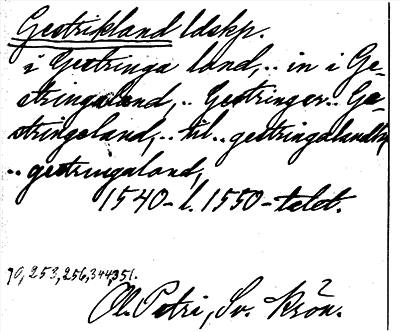 Gestrikland ldskp.
i Gestringa land, .. in i Ge-
stringaland, .. Gestringer .. Ge-
stringeland, .. til .. gestringalandh
.. gestringaland,
1540- l. 1550-talet.
90, 253, 256, 344, 351.
Ol. Petri, Sv. Krön.